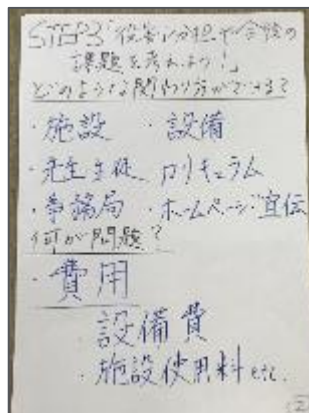 STEP3「役割分担や全体の
課題を考えよう!」
どのような関わり方ができる?
・施設 ・設備
・先生生徒 カリキュラム
・事務局 ・ホームページ宣伝
何が問題?
・費用
設備費
・施設使用料 etc.
2